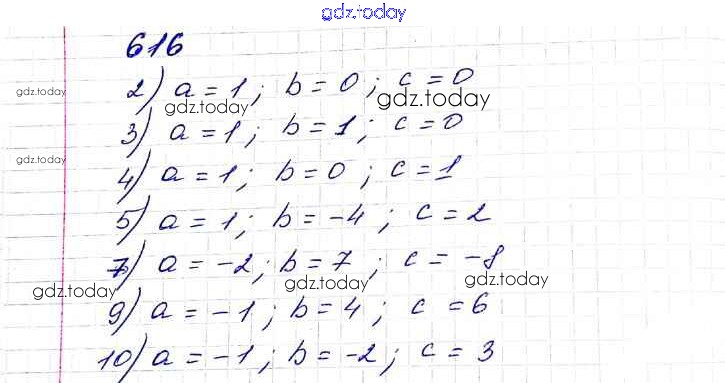 gdz.today
616
gdz.today
2) a = 1; b = 0; c = 0
gdz.today gdz.today
3) a = 1; b = 1; c = 0
gdz.today
4) a = 1; b = 0; c = 1
5) a = 1; b = -4; c = 2
7) a = -2; b = 7; c = -8
gdz.today gdz.today gdz.today
9) a = -1; b = 4; c = 6
10) a = -1; b = -2; c = 3